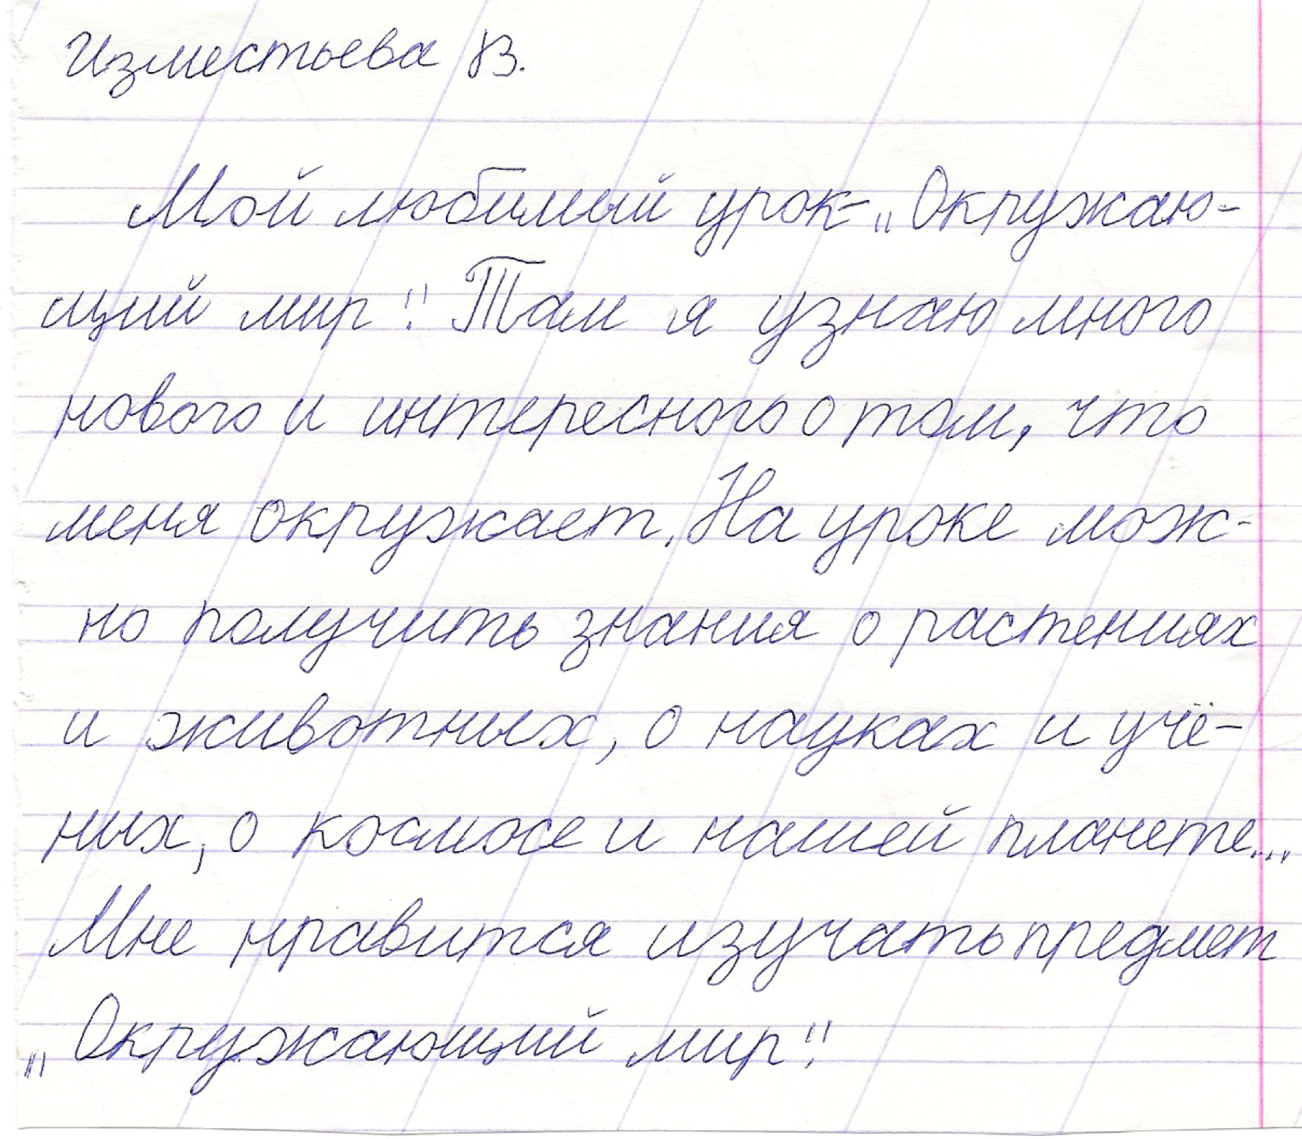 Изместьева В.
Мой любимый урок - „Окружаю-
щий мир". Там я узнаю много
нового и интересного о том, что
меня окружает. На уроке мож-
но получить знания о растениях
и животных, о науках и учё-
ных, о космосе и нашей планете...
Мне нравится изучать предмет
„Окружающий мир".